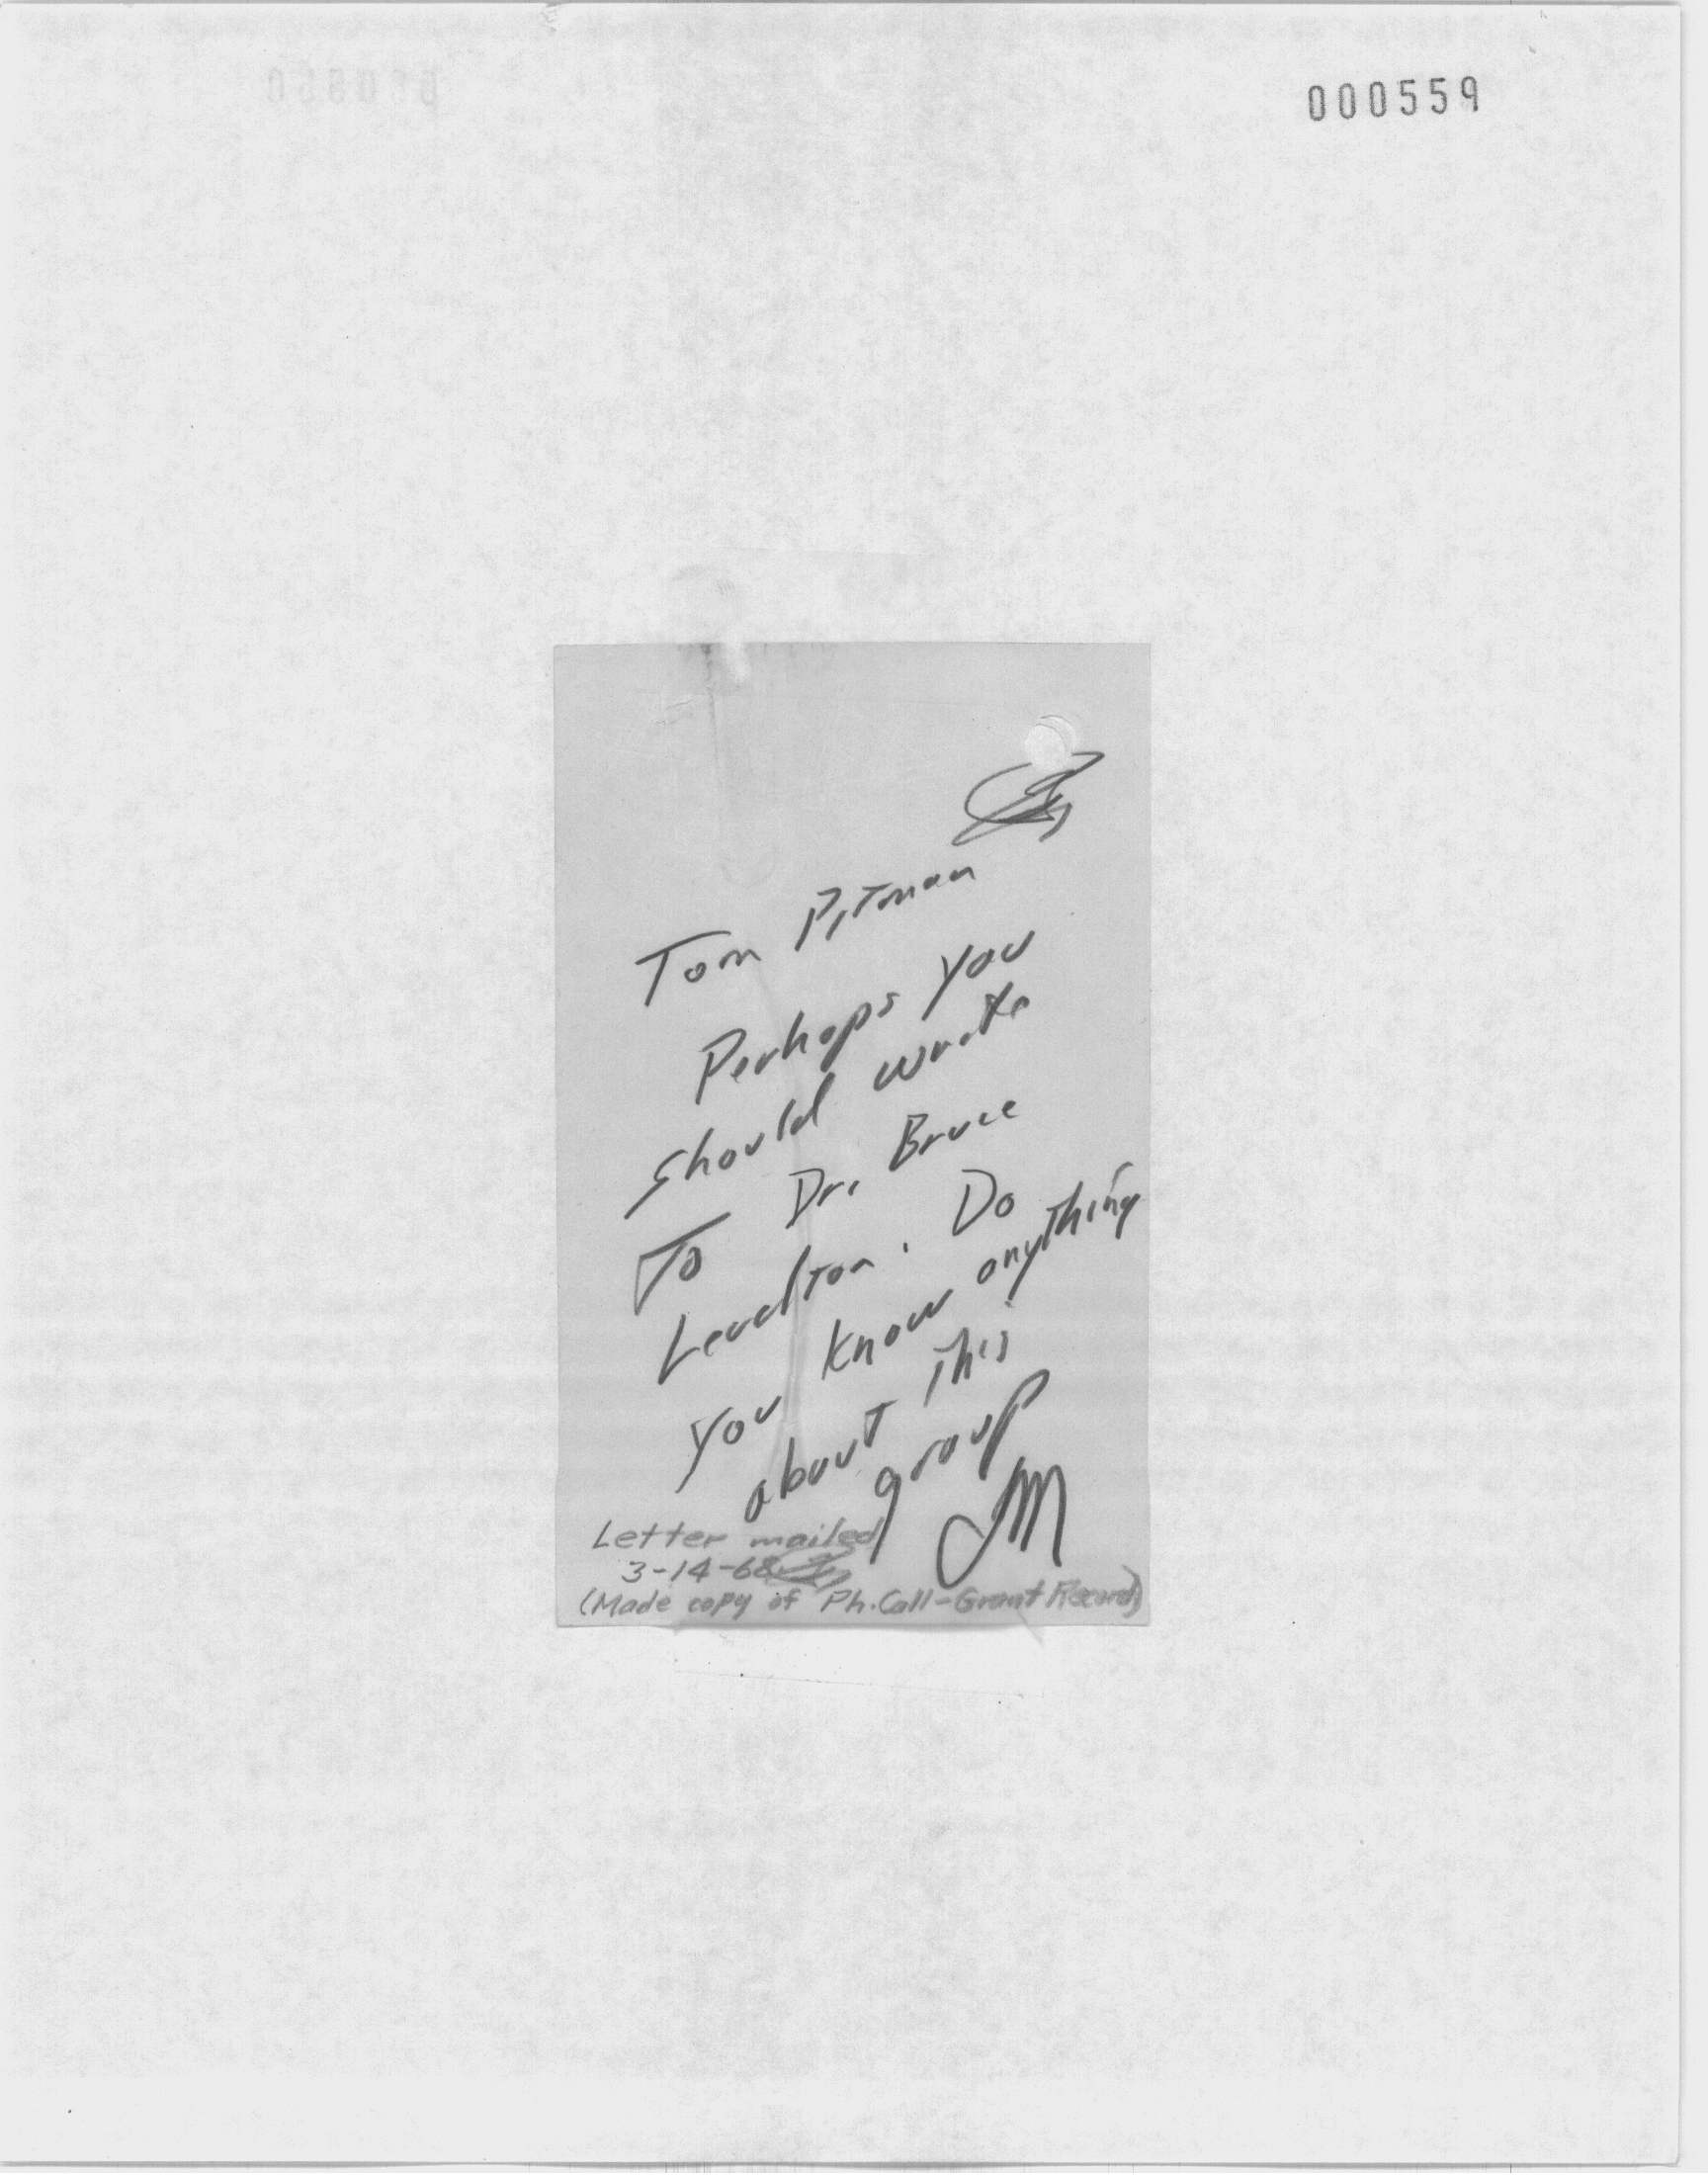 000559
Tom Pitman
Perhaps you
should write
To Dr. Bruce
Do
you know anything
about this
group
JM
Letter mailed
3-14-68
(Made copy of Ph. Call-Grant Record)